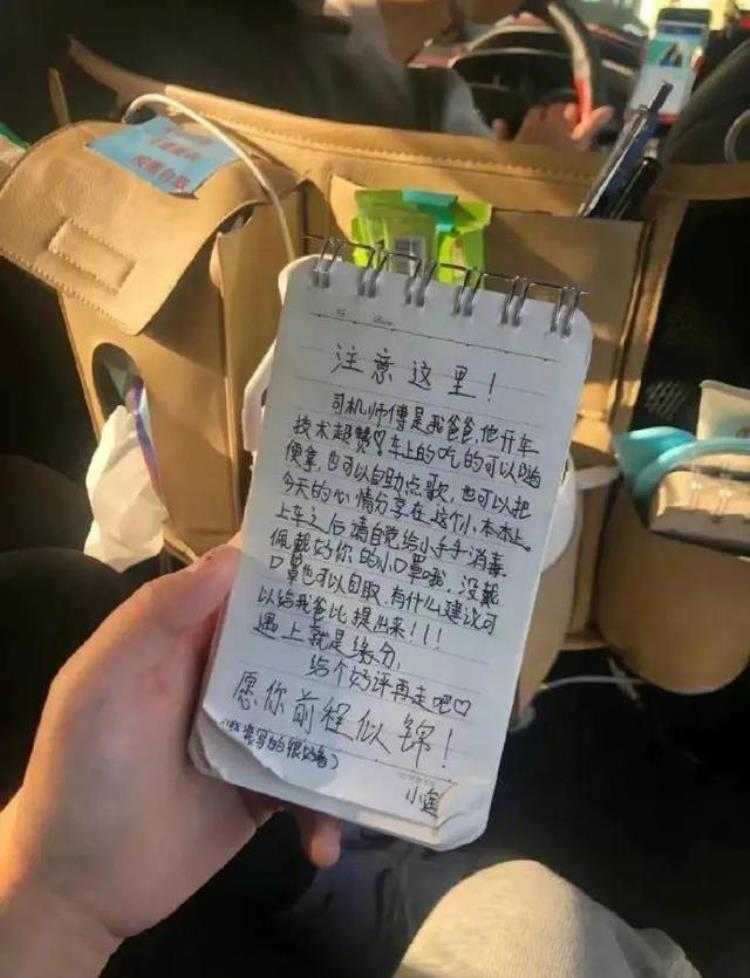 注意这里！
司机师傅是我爸爸,他开车
技术超赞♡车上的吃的可以随
便拿,也可以自助点歌,也可以把
今天的心情分享在这个小本本上。
上车之后请自觉给小手手消毒
佩戴好你的小口罩哦,没戴
口罩也可以自取.有什么建议可
以给我爸比提出来！！！
遇上就是缘分,
给个好评再走吧♡
愿你前程似锦！